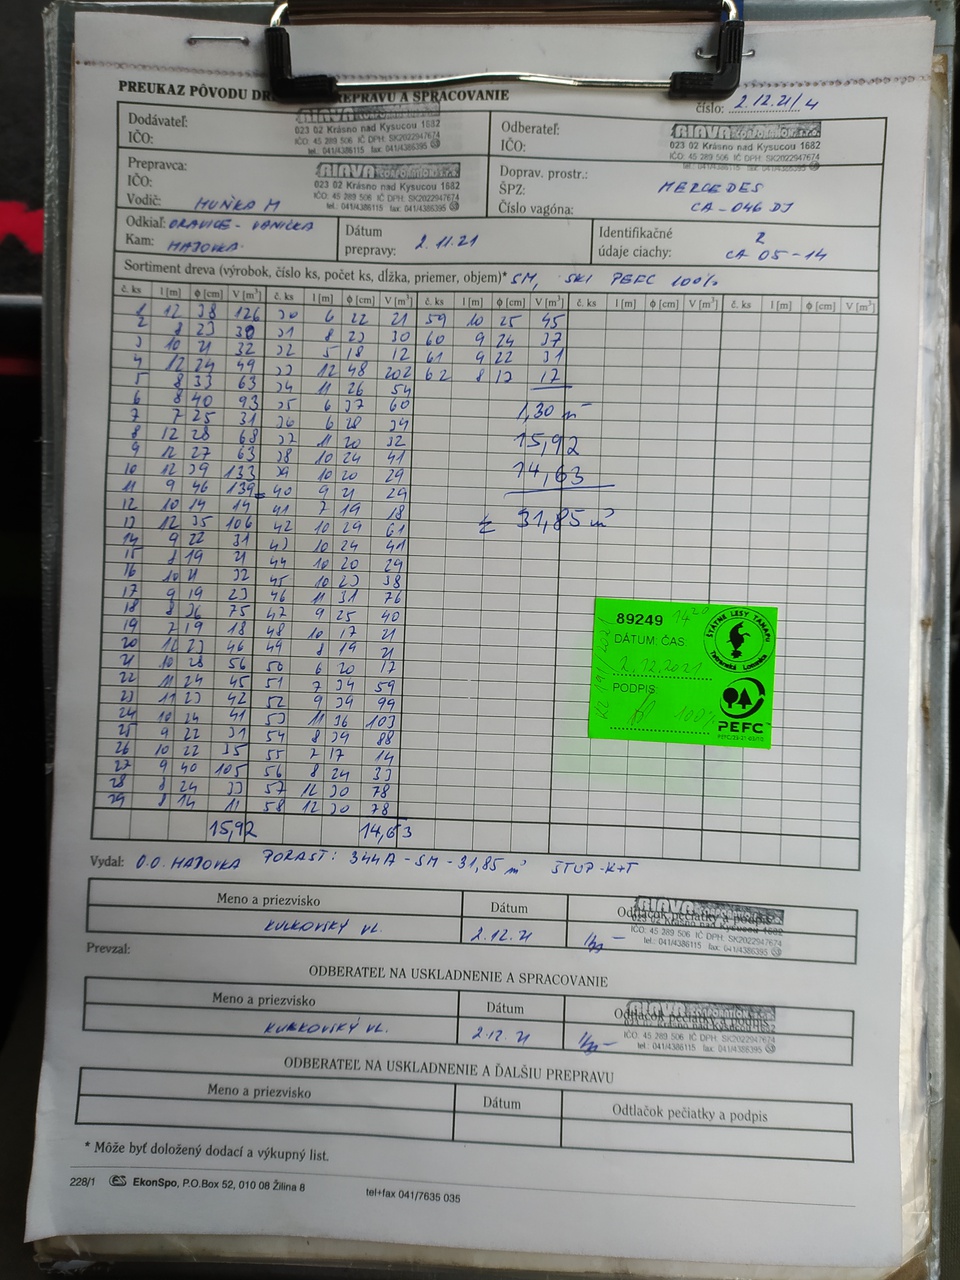 PREUKAZ PÔVODU DR REPRAVU A SPRACOVANIE
číslo: 2.12.21/4
Dodávateľ:
IČO:
RIAVA CORPORATION s.r.o.
023 02 Krásno nad Kysucou 1682
IČO: 45 289 506 IČ DPH: SK2022947674
tel.: 041/4386115 fax: 041/4386395
Odberateľ:
IČO:
RIAVA CORPORATION s.r.o.
023 02 Krásno nad Kysucou 1682
IČO: 45 289 506 IČ DPH: SK2022947674
tel.: 041/4386115 fax: 041/4386395
Prepravca:
IČO:
Vodič: HUŇKA M
RIAVA CORPORATION s.r.o.
023 02 Krásno nad Kysucou 1682
IČO: 45 289 506 IČ DPH: SK2022947674
tel.: 041/4386115 fax: 041/4386395
Doprav. prostr.: MERCEDES
ŠPZ:
Číslo vagóna: CA - 046 DJ
Odkiaľ: ORAVICE - VANIČKA
Kam: HÁJOVKA
Dátum
prepravy: 2.11.21
Identifikačné
údaje ciachy: 2
CA 05 - 14
Sortiment dreva (výrobok, číslo ks, počet ks, dĺžka, priemer, objem)* SM, SKI PEFC 100%
č. ks l [m] ϕ [cm] V [m³] č. ks l [m] ϕ [cm] V [m³] č. ks l [m] ϕ [cm] V [m³] č. ks l [m] ϕ [cm] V [m³] č. ks l [m] ϕ [cm] V [m³]
1 12 38 126 30 6 22 21 59 10 25 45
2 8 23 30 31 8 23 30 60 9 24 37
3 10 21 32 32 5 18 12 61 9 22 31
4 12 24 49 33 12 48 202 62 8 17 17
5 8 33 63 34 11 26 54
6 8 40 93 35 6 37 60
7 7 25 31 36 6 28 34
8 12 28 68 37 11 20 32
9 12 27 63 38 10 24 41
10 12 39 133 39 10 20 29
11 9 46 139 40 9 21 29
12 10 14 14 41 7 19 18
13 12 35 106 42 10 29 61
14 9 22 31 43 10 24 41
15 8 19 21 44 10 20 29
16 10 21 32 45 10 23 38
17 9 19 23 46 11 31 76
18 8 36 75 47 9 25 40
19 7 19 18 48 10 17 21
20 12 23 46 49 8 19 21
21 10 28 56 50 6 20 17
22 11 24 45 51 7 34 59
23 11 23 42 52 9 39 99
24 10 24 41 53 11 36 103
25 9 22 31 54 8 39 88
26 10 22 35 55 7 17 14
27 9 40 105 56 8 24 33
28 8 24 33 57 12 30 78
29 8 14 11 58 12 30 78
15,92 14,63
1,30 m³
15,92
14,63
Σ 31,85 m³
89249 14 20
DÁTUM: ČAS:
2.12.2021
PODPIS
100%
ŠTÁTNE LESY TANAPu
Tatranská Lomnica
PEFC
Vydal: O.O. HÁJOVKA PORAST: 344A - SM - 31,85 m³ ŠTUP - K+T
Meno a priezvisko Dátum Odtlačok pečiatky a podpis
KULKOVSKÝ VL. 2.12.21
RIAVA CORPORATION s.r.o.
023 02 Krásno nad Kysucou 1682
IČO: 45 289 506 IČ DPH: SK2022947674
tel.: 041/4386115 fax: 041/4386395
Prevzal:
ODBERATEĽ NA USKLADNENIE A SPRACOVANIE
Meno a priezvisko Dátum Odtlačok pečiatky a podpis
KULKOVSKÝ VL. 2.12.21
RIAVA CORPORATION s.r.o.
023 02 Krásno nad Kysucou 1682
IČO: 45 289 506 IČ DPH: SK2022947674
tel.: 041/4386115 fax: 041/4386395
ODBERATEĽ NA USKLADNENIE A ĎALŠIU PREPRAVU
Meno a priezvisko Dátum Odtlačok pečiatky a podpis
* Môže byť doložený dodací a výkupný list.
228/1 EkonSpo, P.O.Box 52, 010 08 Žilina 8 tel+fax 041/7635 035